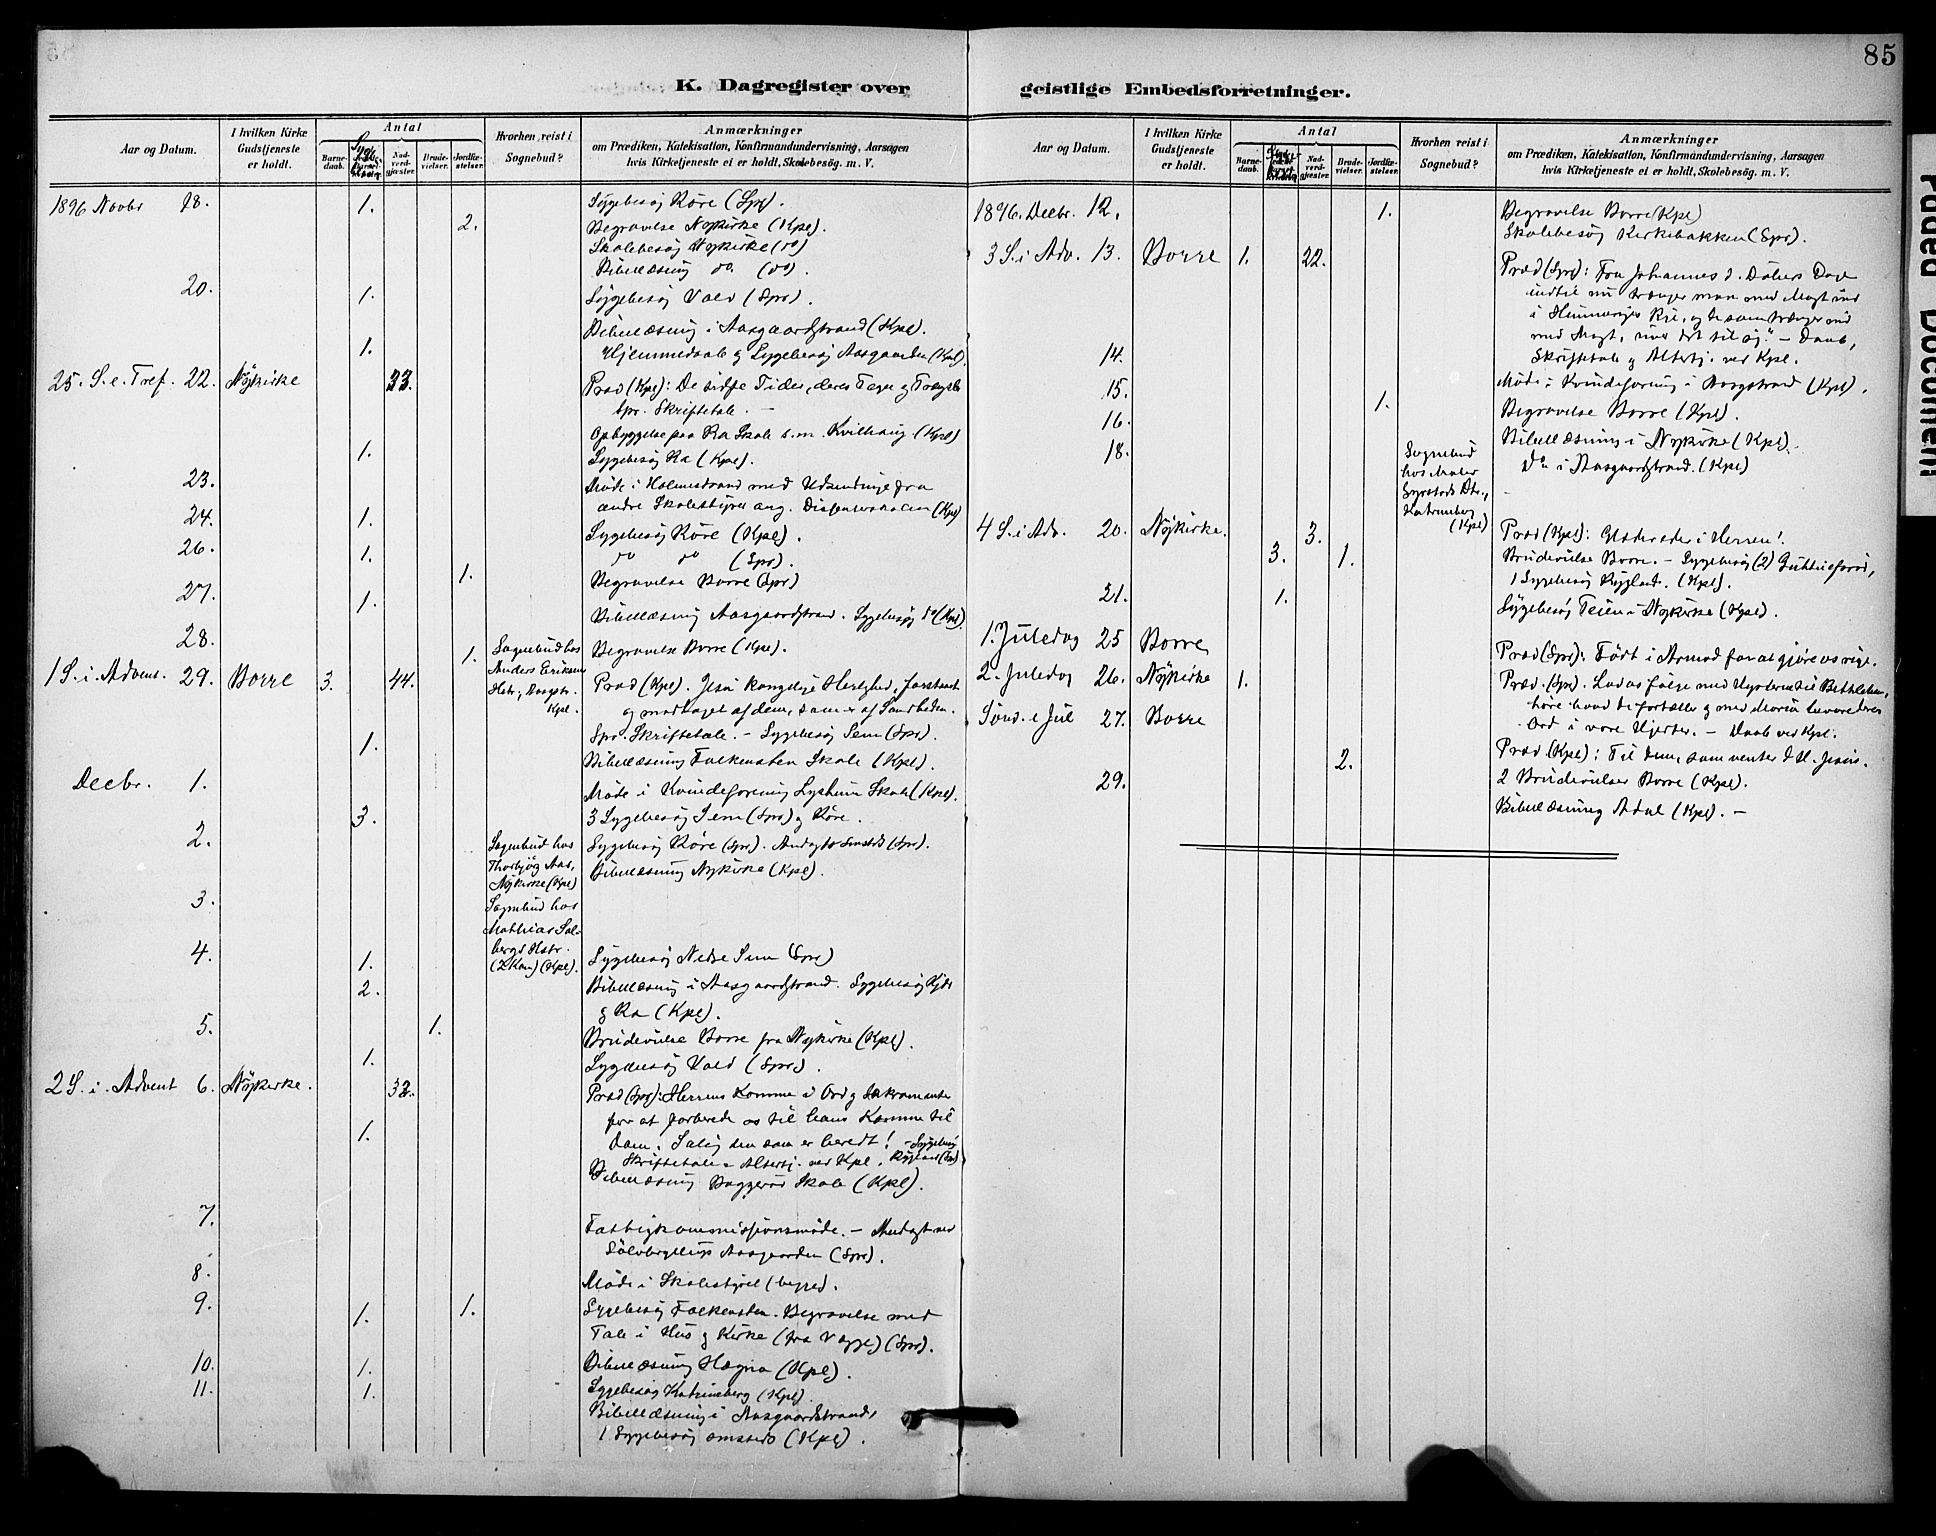 85
K. Dagregister over geistlige Embedsforretninger.
Aar og Datum.
I hvilken Kirke Gudstjeneste er holdt.
Antal
Barnedaab.
Nadverdgjæster.
Brudevielser.
Jordfæstelser.
Hvorhen reist i Sognebud?
Anmærkninger
om Prædiken, Katekisation, Konfirmandundervisning, Aarsagen
hvis Kirketjeneste ei er holdt, Skolebesög. m. V.
1896 Novbr 18. 1. Sygebesøg Røre (Spr).
2. Begravelse Nykirke (Kpl).
Skolebesøg Nykirke (do)
Bibellæsning do. (do).
20. 1. Sygebesøg Vold (Spr).
Bibellæsning i Aasgaardstrand (Kpl).
1. Hjemmedaab og Sygebesøg Aasgaarden (Kpl).
25. S. e. Tref. 22. Nykirke 33. Præd (Kpl): De sidste Tider, deres Farer og Trængsler
Spr. Skriftetale. –
Opbyggelse paa Ra Skole s. m. Kvilhaug (Kpl)
1. Sygebesøg Ra (Kpl).
23. Møde i Holmestrand med Udsendinge fra
andre Skolestyrer ang. (Kpl)
24. 1. Sygebesøg Røre (Kpl).
26. 1. do do (Spr).
1. Begravelse Borre (Spr)
27. 1. Bibellæsning Aasgaardstrand. Sygebesøg do (Kpl).
28. 1. Sognebud hos Begravelse Borre (Kpl).
1 S. i. Advent. 29. Borre 3. 44. Anders Eriksens
Hstr, Aasgstr.
Kpl.
Præd (Kpl). Jesu kongelige Herlighed, forstaaet
og modtaget af dem, som er af Sandheden.
1. Spr. Skriftetale. – Sygebesøg Sem (Spr).
Bibellæsning Falkensten Skole (Kpl).
Decbr. 1. Møde i Kvindeforening Lysheim Skole (Kpl).
3. 3 Sygebesøg Sem (Spr) og Røre.
2. Sognebud hos
Thorbjøg Aas,
Nykirke (Kpl)
Sygebesøg Røre (Spr). Andagt Smsteds (Spr).
Bibellæsning Nykirke (Kpl).
3. Sognebud hos
Mathias Sol-
bergs Hstr.
(2 Kom) (Kpl).
4. 1. Sygebesøg Nedre Sem (Spr)
2. Bibellæsning i Aasgaardstrand. Sygebesøg
og Ra (Kpl).
5. 1. Brudevielse Borre fra Nykirke (Kpl).
1. Sygebesøg Vold (Spr).
2 S. i. Advent 6. Nykirke. 32. Præd (Spr): Herrens Komme i Ord og Sakramenter
for at forberede os til hans Komme til
1. Dom. Salig den som er beredt! – Sygebesøg
Skriftetale og Altertj. ved Kpl. Rygland (Spr)
Bibellæsning Baggerød Skole (Kpl).
7. Fattigkommissionsmøde. – Andagt ved
Sølvbryllup Aasgaarden (Spr).
8. Møde i Skolestyret (begge).
9. 1. 1. Sygebesøg Falkensten. Begravelse med
Tale i Hus og Kirke (fra ) (Spr).
10. 1. Bibellæsning Hegna (Kpl).
11. 1. Sygebesøg Katrineberg (Kpl)
Bibellæsning i Aasgaardstrand,
1 Sygebesøg smsteds (Kpl).
Aar og Datum.
I hvilken Kirke Gudstjeneste er holdt.
Antal
Barnedaab.
Nadverdgjæster.
Brudevielser.
Jordfæstelser.
Hvorhen reist i Sognebud?
Anmærkninger
om Prædiken, Katekisation, Konfirmandundervisning, Aarsagen
hvis Kirketjeneste ei er holdt, Skolebesög. m. V.
1896. Decbr. 12. 1. Begravelse Borre (Kpl)
Skolebesøg Kirkebakken (Spr).
3 S. i Adv. 13. Borre 1. 22. Præd (Spr): Fra Johannes d. Døbers Dage
indtil nu trænger man med Magt ind
i Himmeriges Rige, og de som trænger ind
med Magt, river det til sig." – Daab,
Skriftetale og Altertj. ved Kpl.
14. Møde i Kvindeforening i Aasgstrand (Kpl).
15. 1. Begravelse Borre (Kpl).
16. Bibellæsning i Nykirke (Kpl).
18. do i Aasgaardstrand. (Kpl)
Sognebud
hos Maler
Katrineberg
(Kpl)
4 S. i Adv. 20. Nykirke. 3. Præd (Kpl): Glæder eder i Herren!
3. 1. Brudevielse Borre. – Sygebesøg (2)
1 Sygebesøg Rygland. (Kpl).
21. 1. Sygebesøg Teien i Nykirke (Kpl).
1. Juledag 25 Borre Præd (Spr): Født i Armod for at gjøre os rige.
2. Juledag 26. Nykirke 1. Præd. (Spr). Lad os følge med Hyrderne til Bethlehem,
høre hvad de fortæller og med Maria bevare deres
Ord i vore Hjerter. – Daab ved Kpl.
Sønd. e Jul 27. Borre Præd (Kpl): Til dem, som venter d H. Jesus.
2. 2 Brudevielser Borre (Kpl).
29. Bibellæsning Adal (Kpl). –
Paded Document